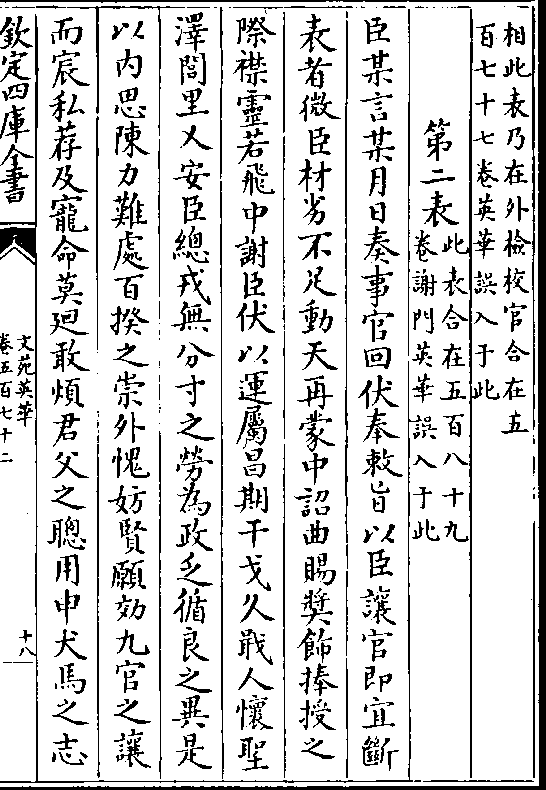 相此表乃在外檢校官合在五
百七十七卷英華誤入于此
第二表
此表合在五百八十九
卷謝門英華誤入于此
臣某言某月日奏事官回伏奉敕旨以臣讓官即宜斷
表者微臣材劣不足動天再蒙中詔曲賜奬飾捧授之
際襟靈若飛中謝臣伏以運屬昌期干戈久戢人懷聖
澤閭里乂安臣總戎無分寸之勞為政乏循良之異是
以内思陳力難處百揆之崇外愧妨賢願効九官之讓
而宸私荐及寵命莫廻敢煩君父之聰用申犬馬之志
欽定四庫全書
文苑英華
卷五百七十二
十八